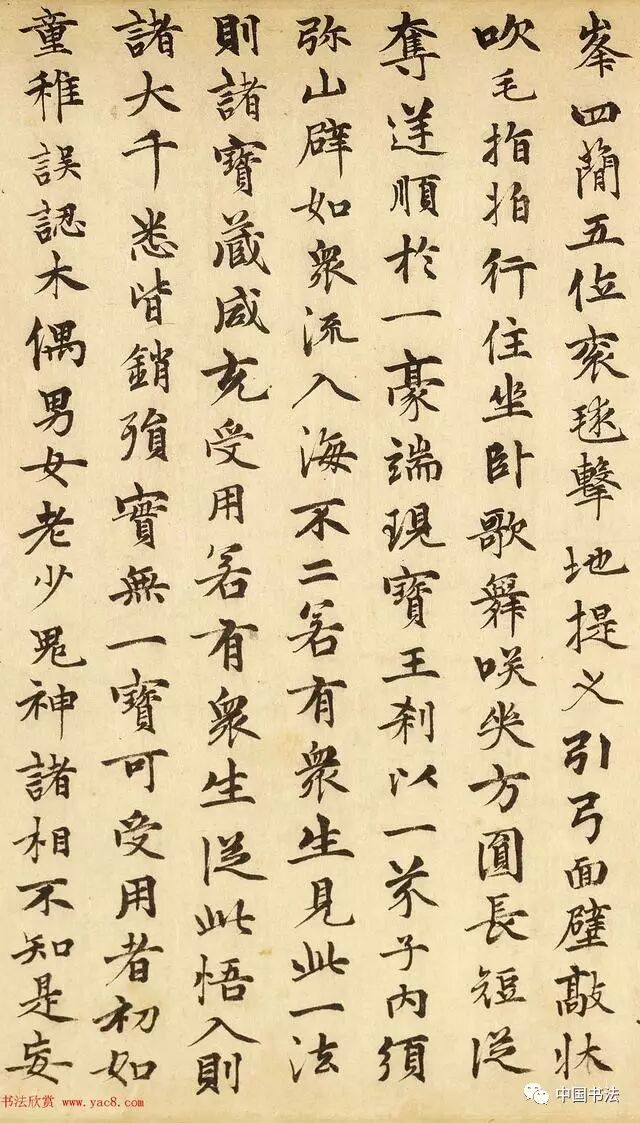 峯四蕳五位衮毬擎地提义引弓面壁敲牀
吹毛指拍行住坐卧歌舞咲哭方圓長短從
奪逆順於一豪端現寶王刹以一芥子内須
弥山辟如衆流入海不二若有衆生見此一法
則諸寶藏咸充受用若有衆生從此悟入則
諸大千悉皆銷殞實無一寶可受用者初如
童稚誤認木偶男女老少鬼神諸相不知是妄
书法欣赏 www.yac8.com
中国书法